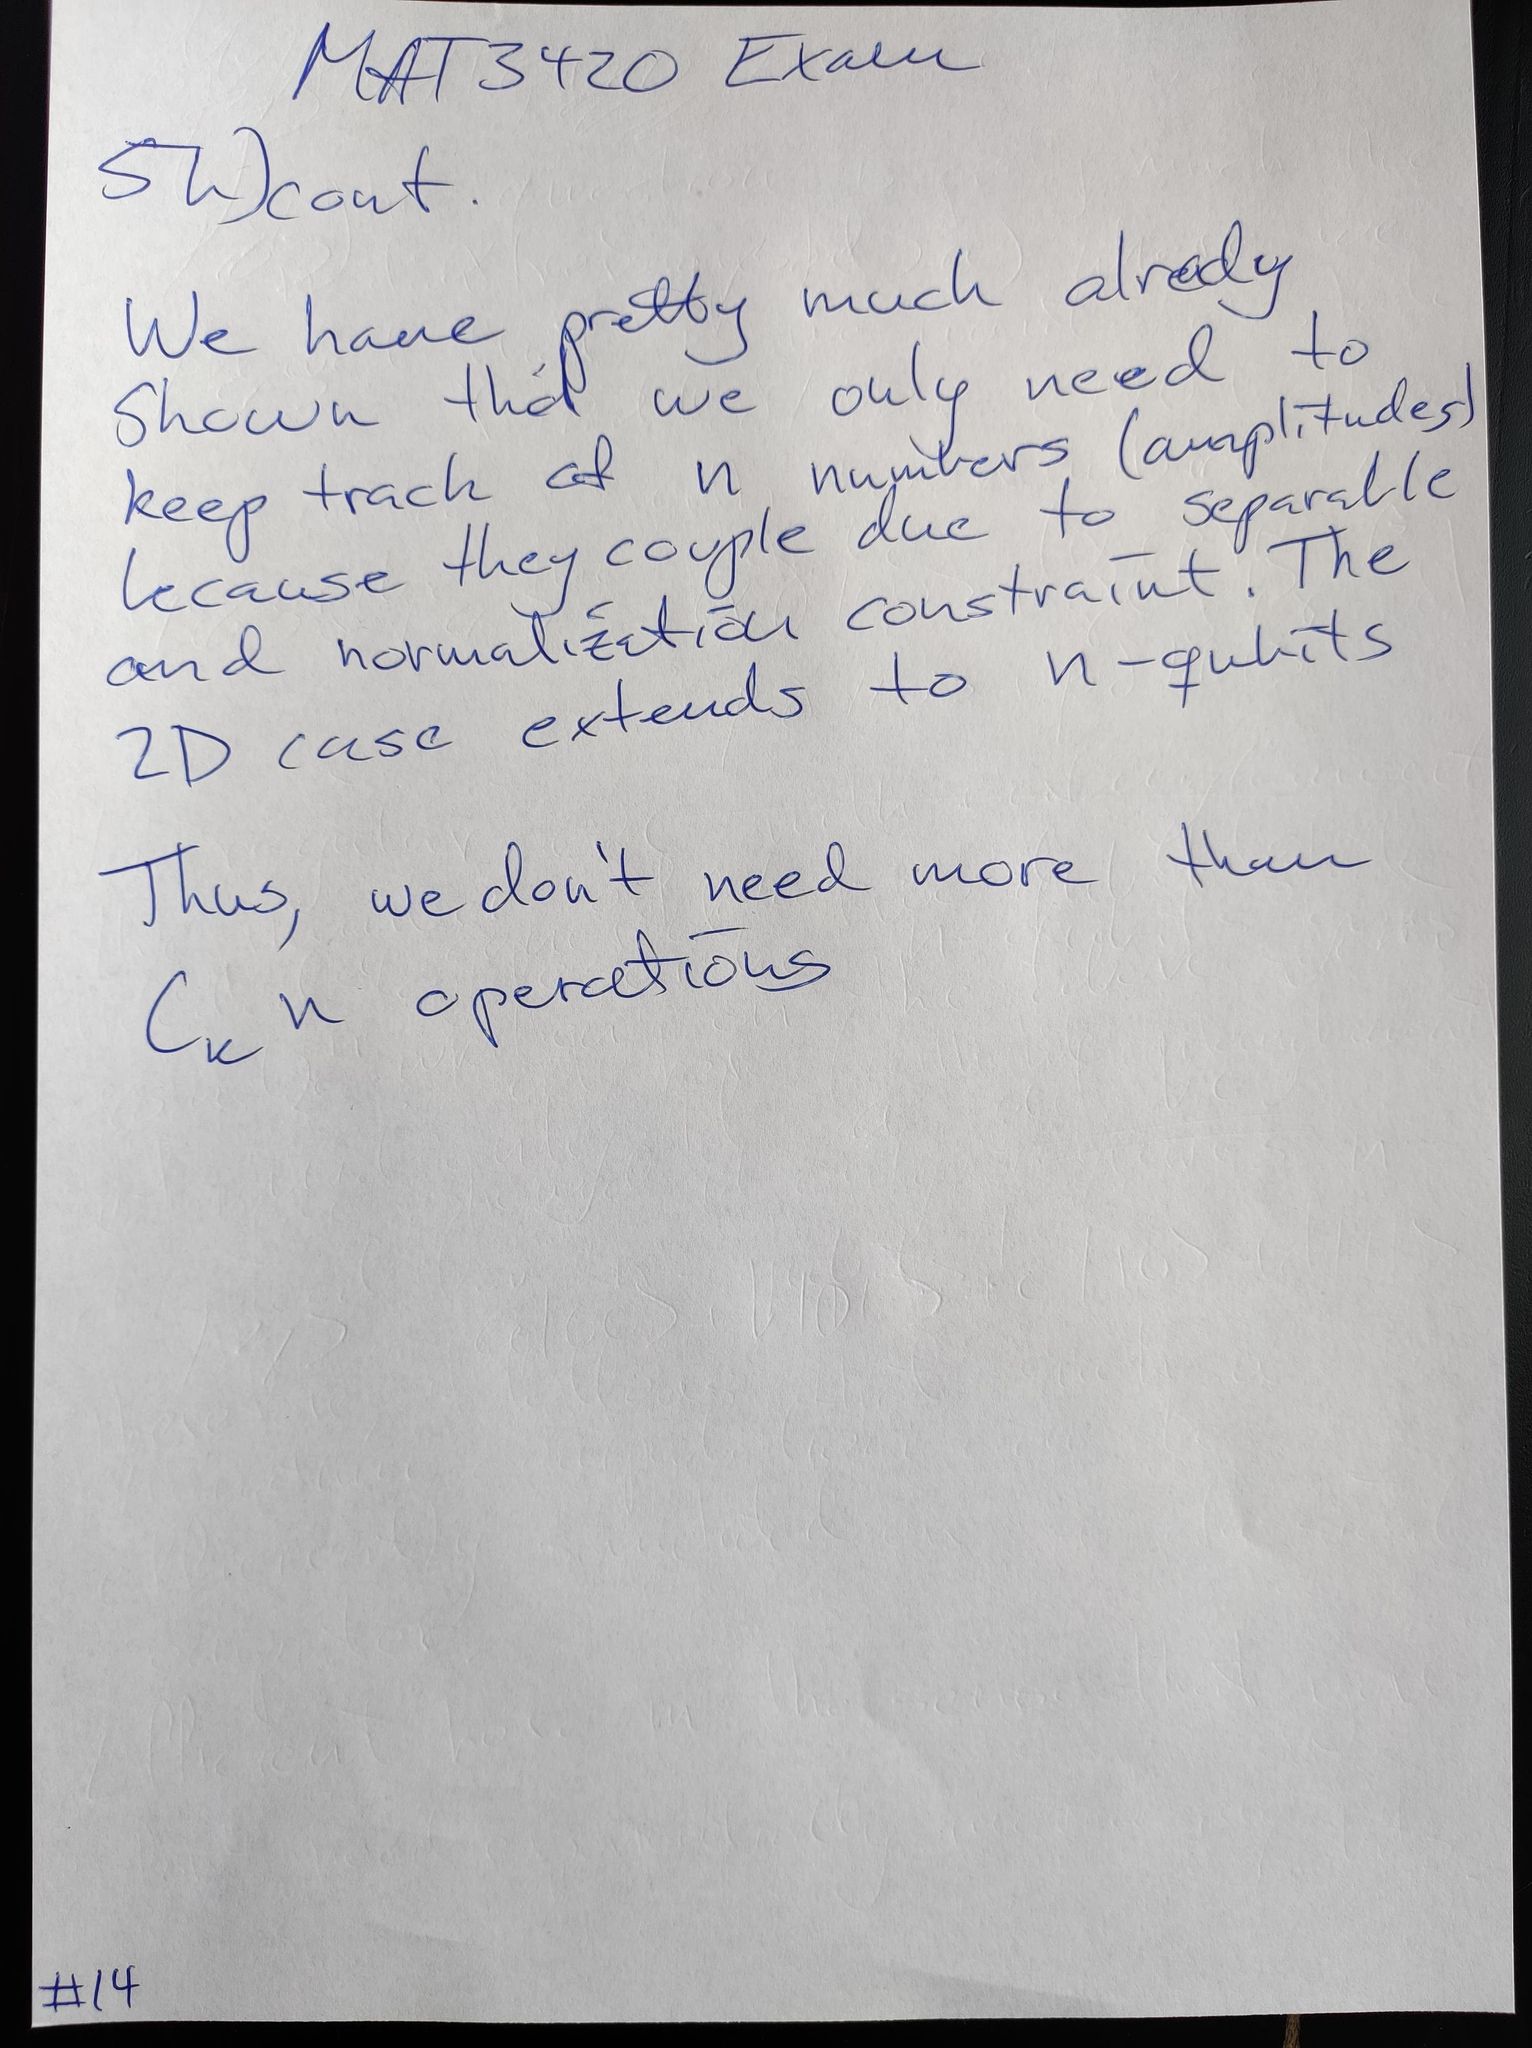 MAT3420 Exam
5h) cont.
We have pretty much alredy
shown that we only need to
keep track of n numbers (amplitudes)
because they couple due to separable
and normalization constraint. The
2D case extends to n-qubits
Thus, we don't need more than
C_k n operations
#14